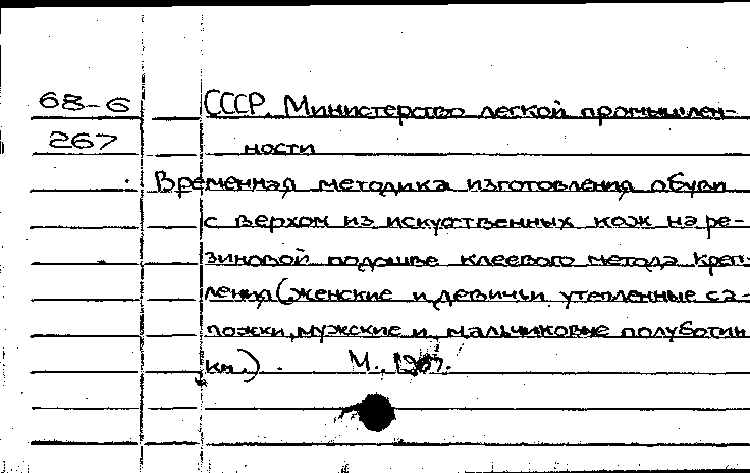 68-6 СССР. Министерство легкой промышлен-
267 ности
Временная методика изготовления обуви
с верхом из искуственных кож на ре-
зиновой подошве клеевого метода креп-
ления (женские и девичьи утепленные са-
пожки, мужские и мальчиковые полуботин
ки.). М.,